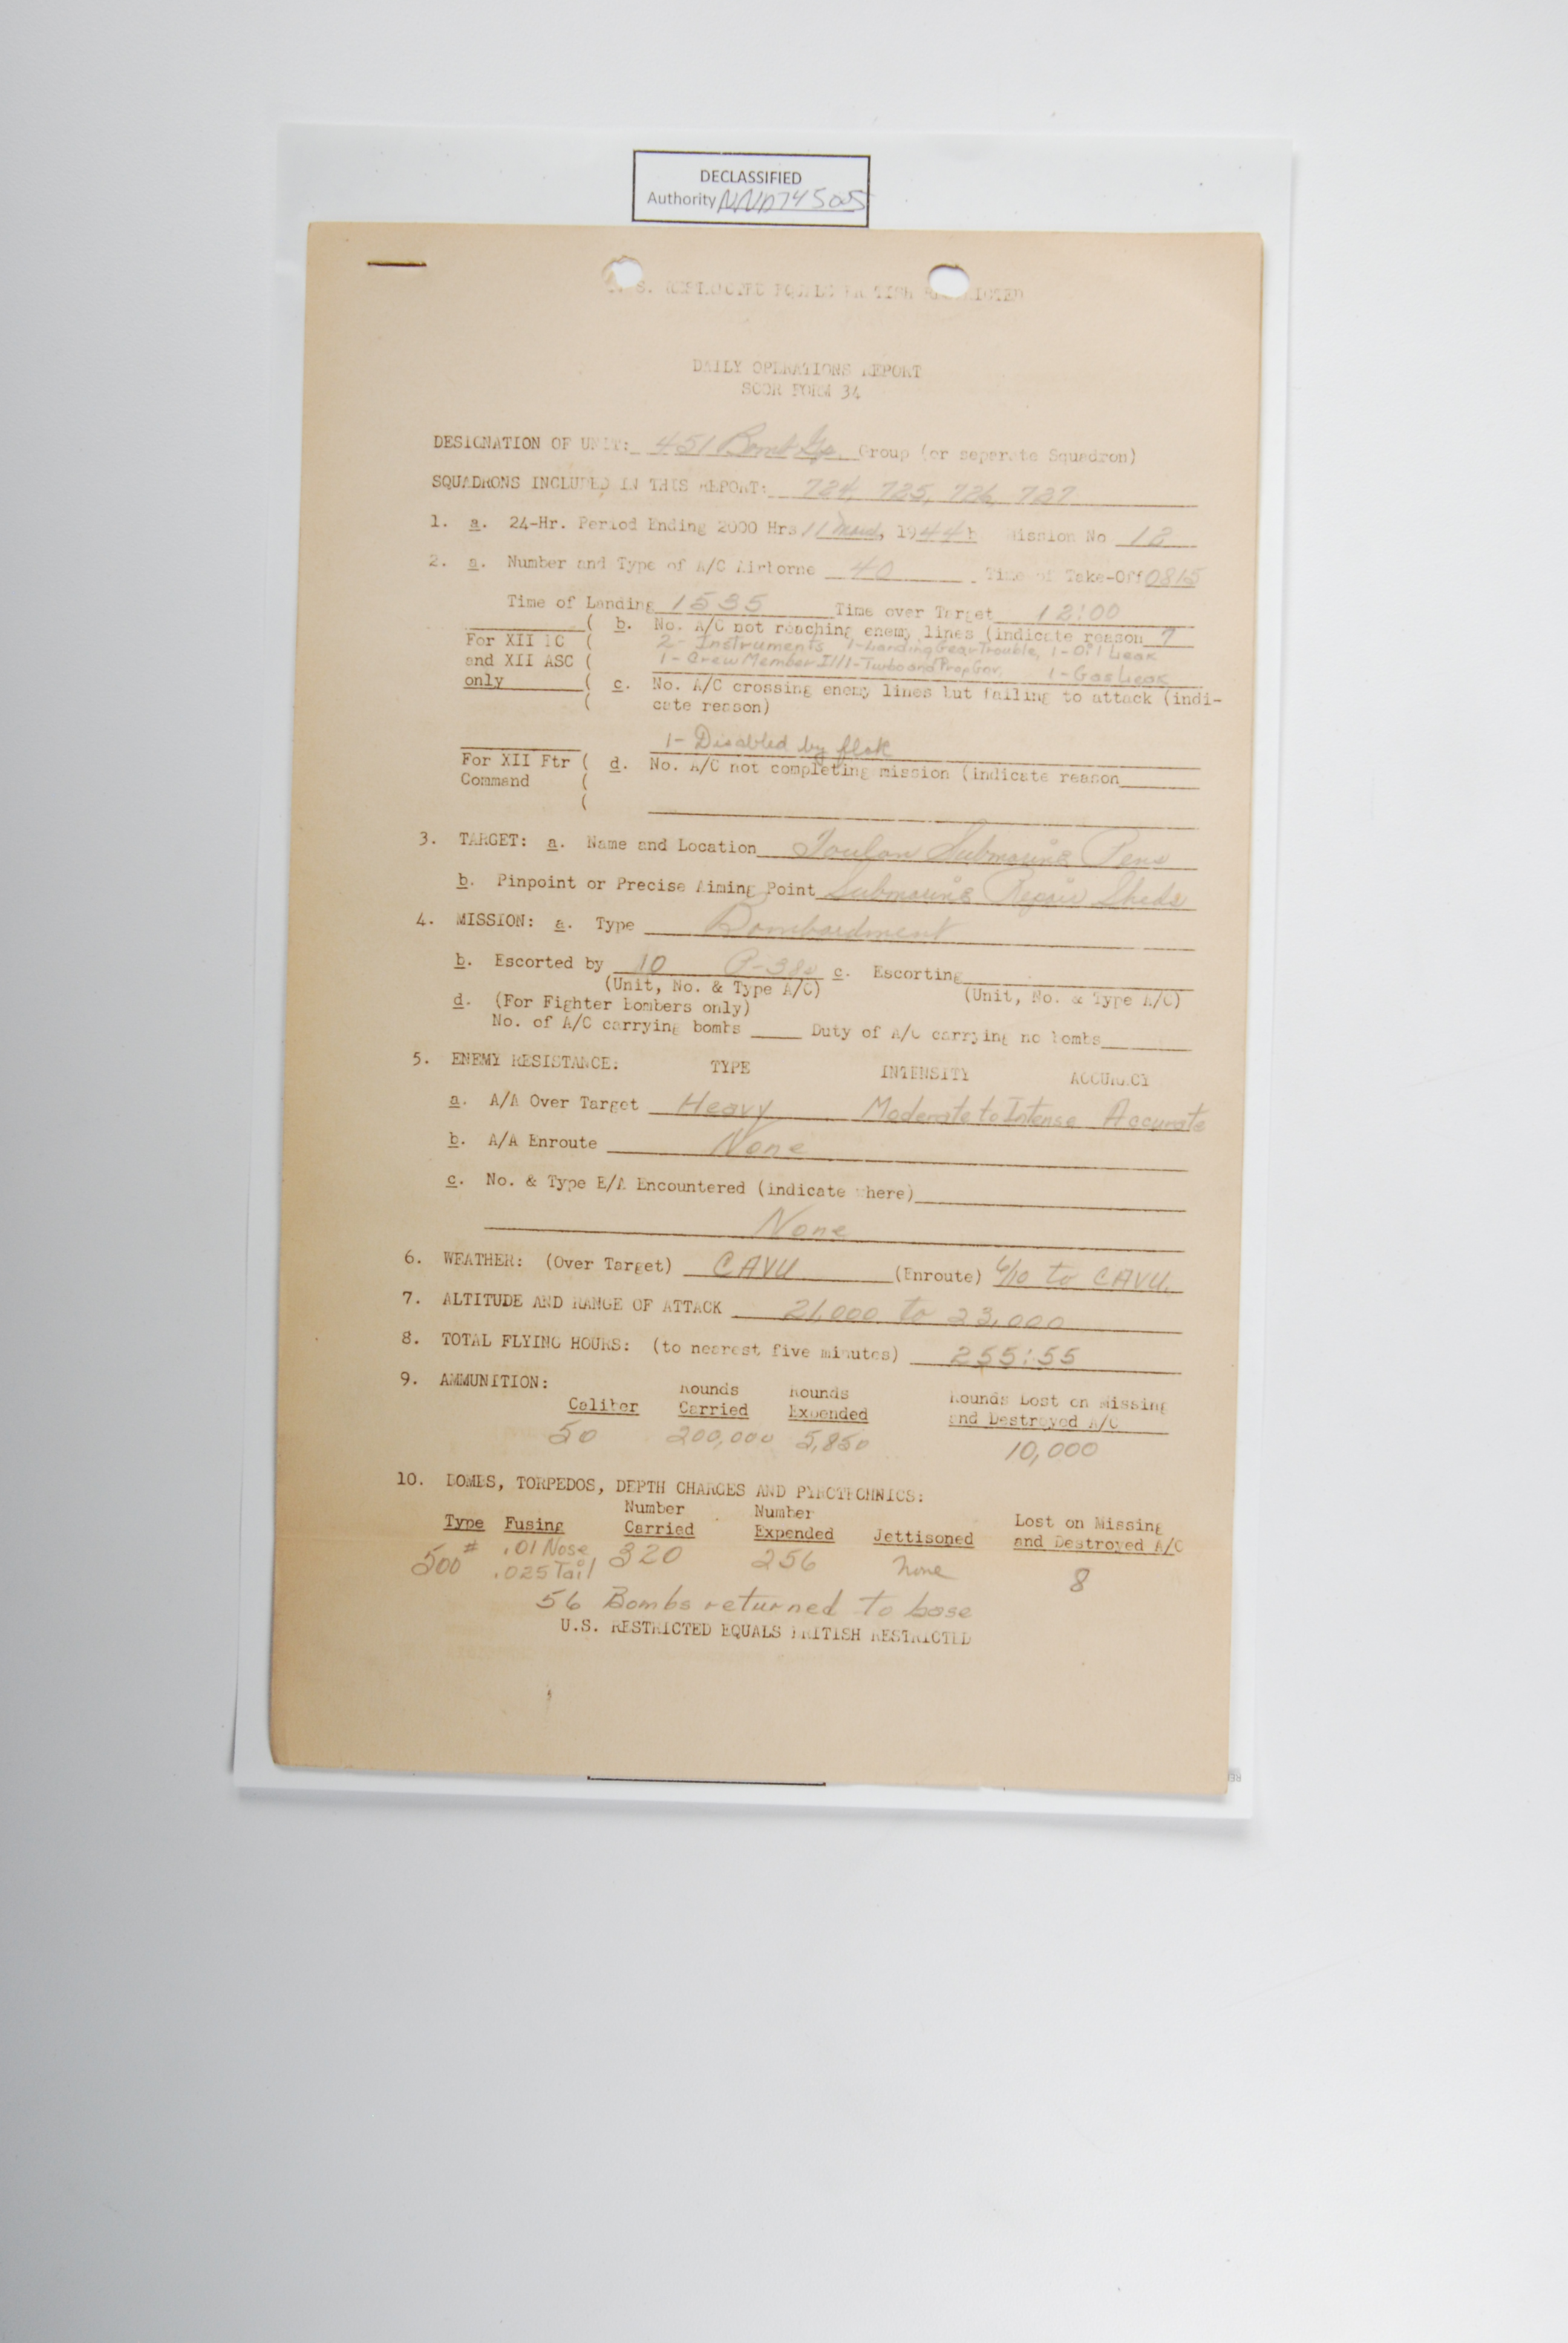 DECLASSIFIED
Authority NND745005
S. RESTRICTED EQUALS BRITISH RESTRICTED
DAILY OPERATIONS REPORT
SCOR FORM 34
DESIGNATION OF UNIT: 451 Bomb Gp. Group (or separate Squadron)
SQUADRONS INCLUDED IN THIS REPORT: 724, 725, 726, 727
1. a. 24-Hr. Period Ending 2000 Hrs 11 March, 1944 Mission No 18
2. a. Number and Type of A/C Airborne 40 Time of Take-Off 0815
Time of Landing 1535 Time over Target 12:00
( b. No. A/C not reaching enemy lines (indicate reason 7
For XII BC ( 2- Instruments 1-Landing Gear Trouble, 1-Oil Leak
and XII ASC ( 1-Crew Member Ill 1-Turbo and Prop Gov, 1-Gas Leak
only ( c. No. A/C crossing enemy lines but failing to attack (indi-
( cate reason)
1- Disabled by flak
For XII Ftr ( d. No. A/C not completing mission (indicate reason
Command (
(
3. TARGET: a. Name and Location Toulon Submarine Pens
b. Pinpoint or Precise Aiming Point Submarine Repair Sheds
4. MISSION: a. Type Bombardment
b. Escorted by 10 P-38s c. Escorting
(Unit, No. & Type A/C) (Unit, No. & Type A/C)
d. (For Fighter bombers only)
No. of A/C carrying bombs Duty of A/C carrying no bombs
5. ENEMY RESISTANCE: TYPE INTENSITY ACCURACY
a. A/A Over Target Heavy Moderate to Intense Accurate
b. A/A Enroute None
c. No. & Type E/A Encountered (indicate where)
None
6. WEATHER: (Over Target) CAVU (Enroute) 6/10 to CAVU.
7. ALTITUDE AND RANGE OF ATTACK 21,000 to 23,000
8. TOTAL FLYING HOURS: (to nearest five minutes) 255:55
9. AMMUNITION:
Rounds Rounds Rounds Lost on Missing
Caliber Carried Expended and Destroyed A/C
50 200,000 5,850 10,000
10. BOMBS, TORPEDOS, DEPTH CHARGES AND PYROTECHNICS:
Number Number Lost on Missing
Type Fusing Carried Expended Jettisoned and Destroyed A/C
500# .01 Nose 320 256 none 8
.025 Tail
56 Bombs returned to base
U.S. RESTRICTED EQUALS BRITISH RESTRICTED